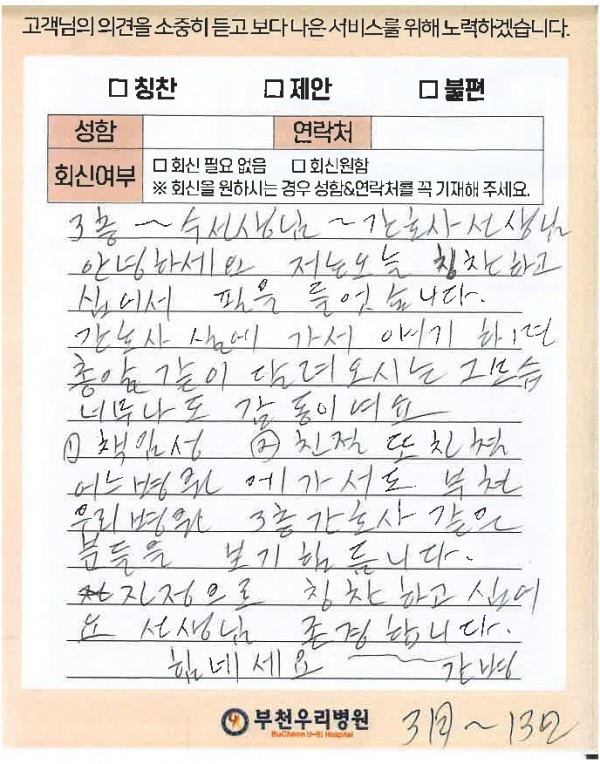 고객님의 의견을 소중히 듣고 보다 나은 서비스를 위해 노력하겠습니다.
□ 칭찬 □ 제안 □ 불편
성함 연락처
회신여부 □ 회신 필요 없음 □ 회신원함
※ 회신을 원하시는 경우 성함&연락처를 꼭 기재해 주세요.
3층 ~ 수선생님 ~ 간호사 선생님
안녕하세요 저는오늘 칭찬하고
십어서 펜을 들엇습니다.
간호사 실에 가서 이야기 하면
총알 같이 달려 오시는 그모습
너무나도 감동이여요
① 책임성 ② 친절 또 친절
어느병원 에가서도 부천
우리병원 3층 간호사 같은
분들은 보기 힘듭니다.
진정으로 칭찬하고 십어
요 선생님 존경합니다.
힘내세요 ~ 간병
부천우리병원
BuCheon U-Ri Hospital
3月~13日